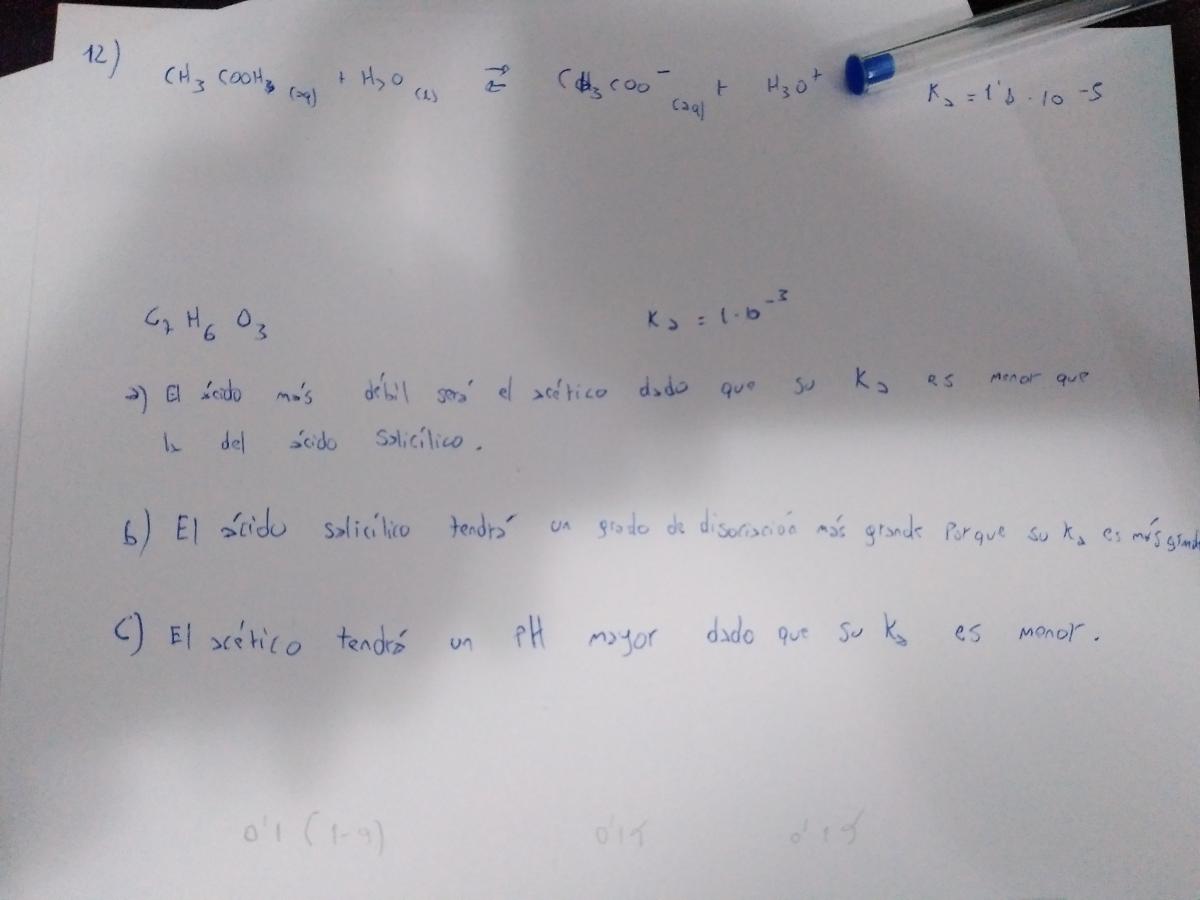 12)
CH3 COOH (aq) + H2O (l) ⇄ CH3COO⁻ (aq) + H3O⁺ Ka = 1'8 · 10⁻⁵
C7 H6 O3 Ka = 1·10⁻³
a) El ácido más débil será el acético dado que su Ka es menor que
la del ácido salicílico.
b) El ácido salicílico tendrá un grado de disociación más grande porque su Ka es más grande
C) El acético tendrá un pH mayor dado que su Ka es menor.